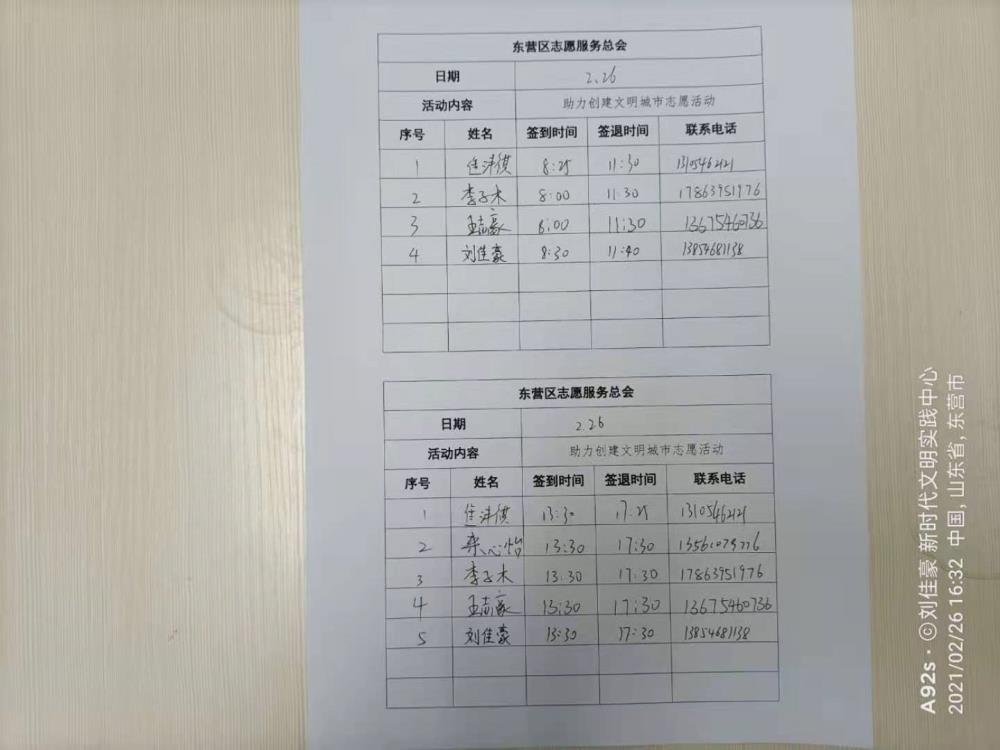 东营区志愿服务总会
日期 2.26
活动内容 助力创建文明城市志愿活动
序号 姓名 签到时间 签退时间 联系电话
1 8:25 11:30 13105462121
2 李子木 8:00 11:30 17863951976
3 孟志豪 8:00 11:30 13675460736
4 刘佳豪 8:30 11:40 13854681138
东营区志愿服务总会
日期 2.26
活动内容 助力创建文明城市志愿活动
序号 姓名 签到时间 签退时间 联系电话
1 13:30 17:25 13105462121
2 栾心怡 13:30 17:30
3 李子木 13:30 17:30 17863951976
4 孟志豪 13:30 17:30 13675460736
5 刘佳豪 13:30 17:30 13854681138
A92s·©刘佳豪 新时代文明实践中心
2021/02/26 16:32 中国, 山东省, 东营市